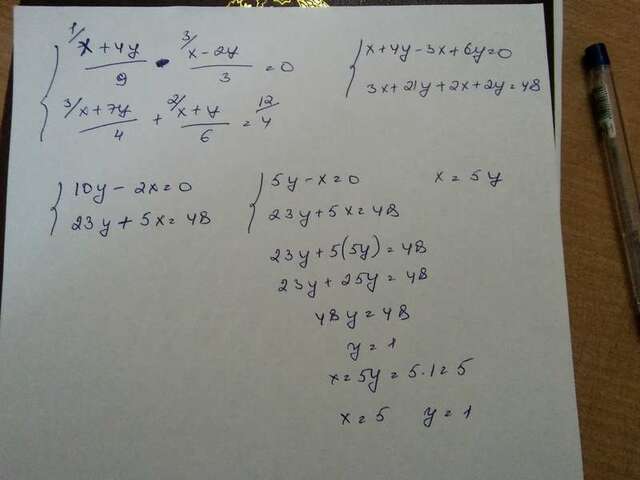 { (x+4y)/9 - (x-2y)/3 = 0 { x+4y-3x+6y=0
(x+7y)/4 + (x+y)/6 = 4 3x+21y+2x+2y=48
{ 10y-2x=0 { 5y-x=0 x=5y
23y+5x=48 23y+5x=48
23y+5(5y)=48
23y+25y=48
48y=48
y=1
x=5y=5·1=5
x=5 y=1